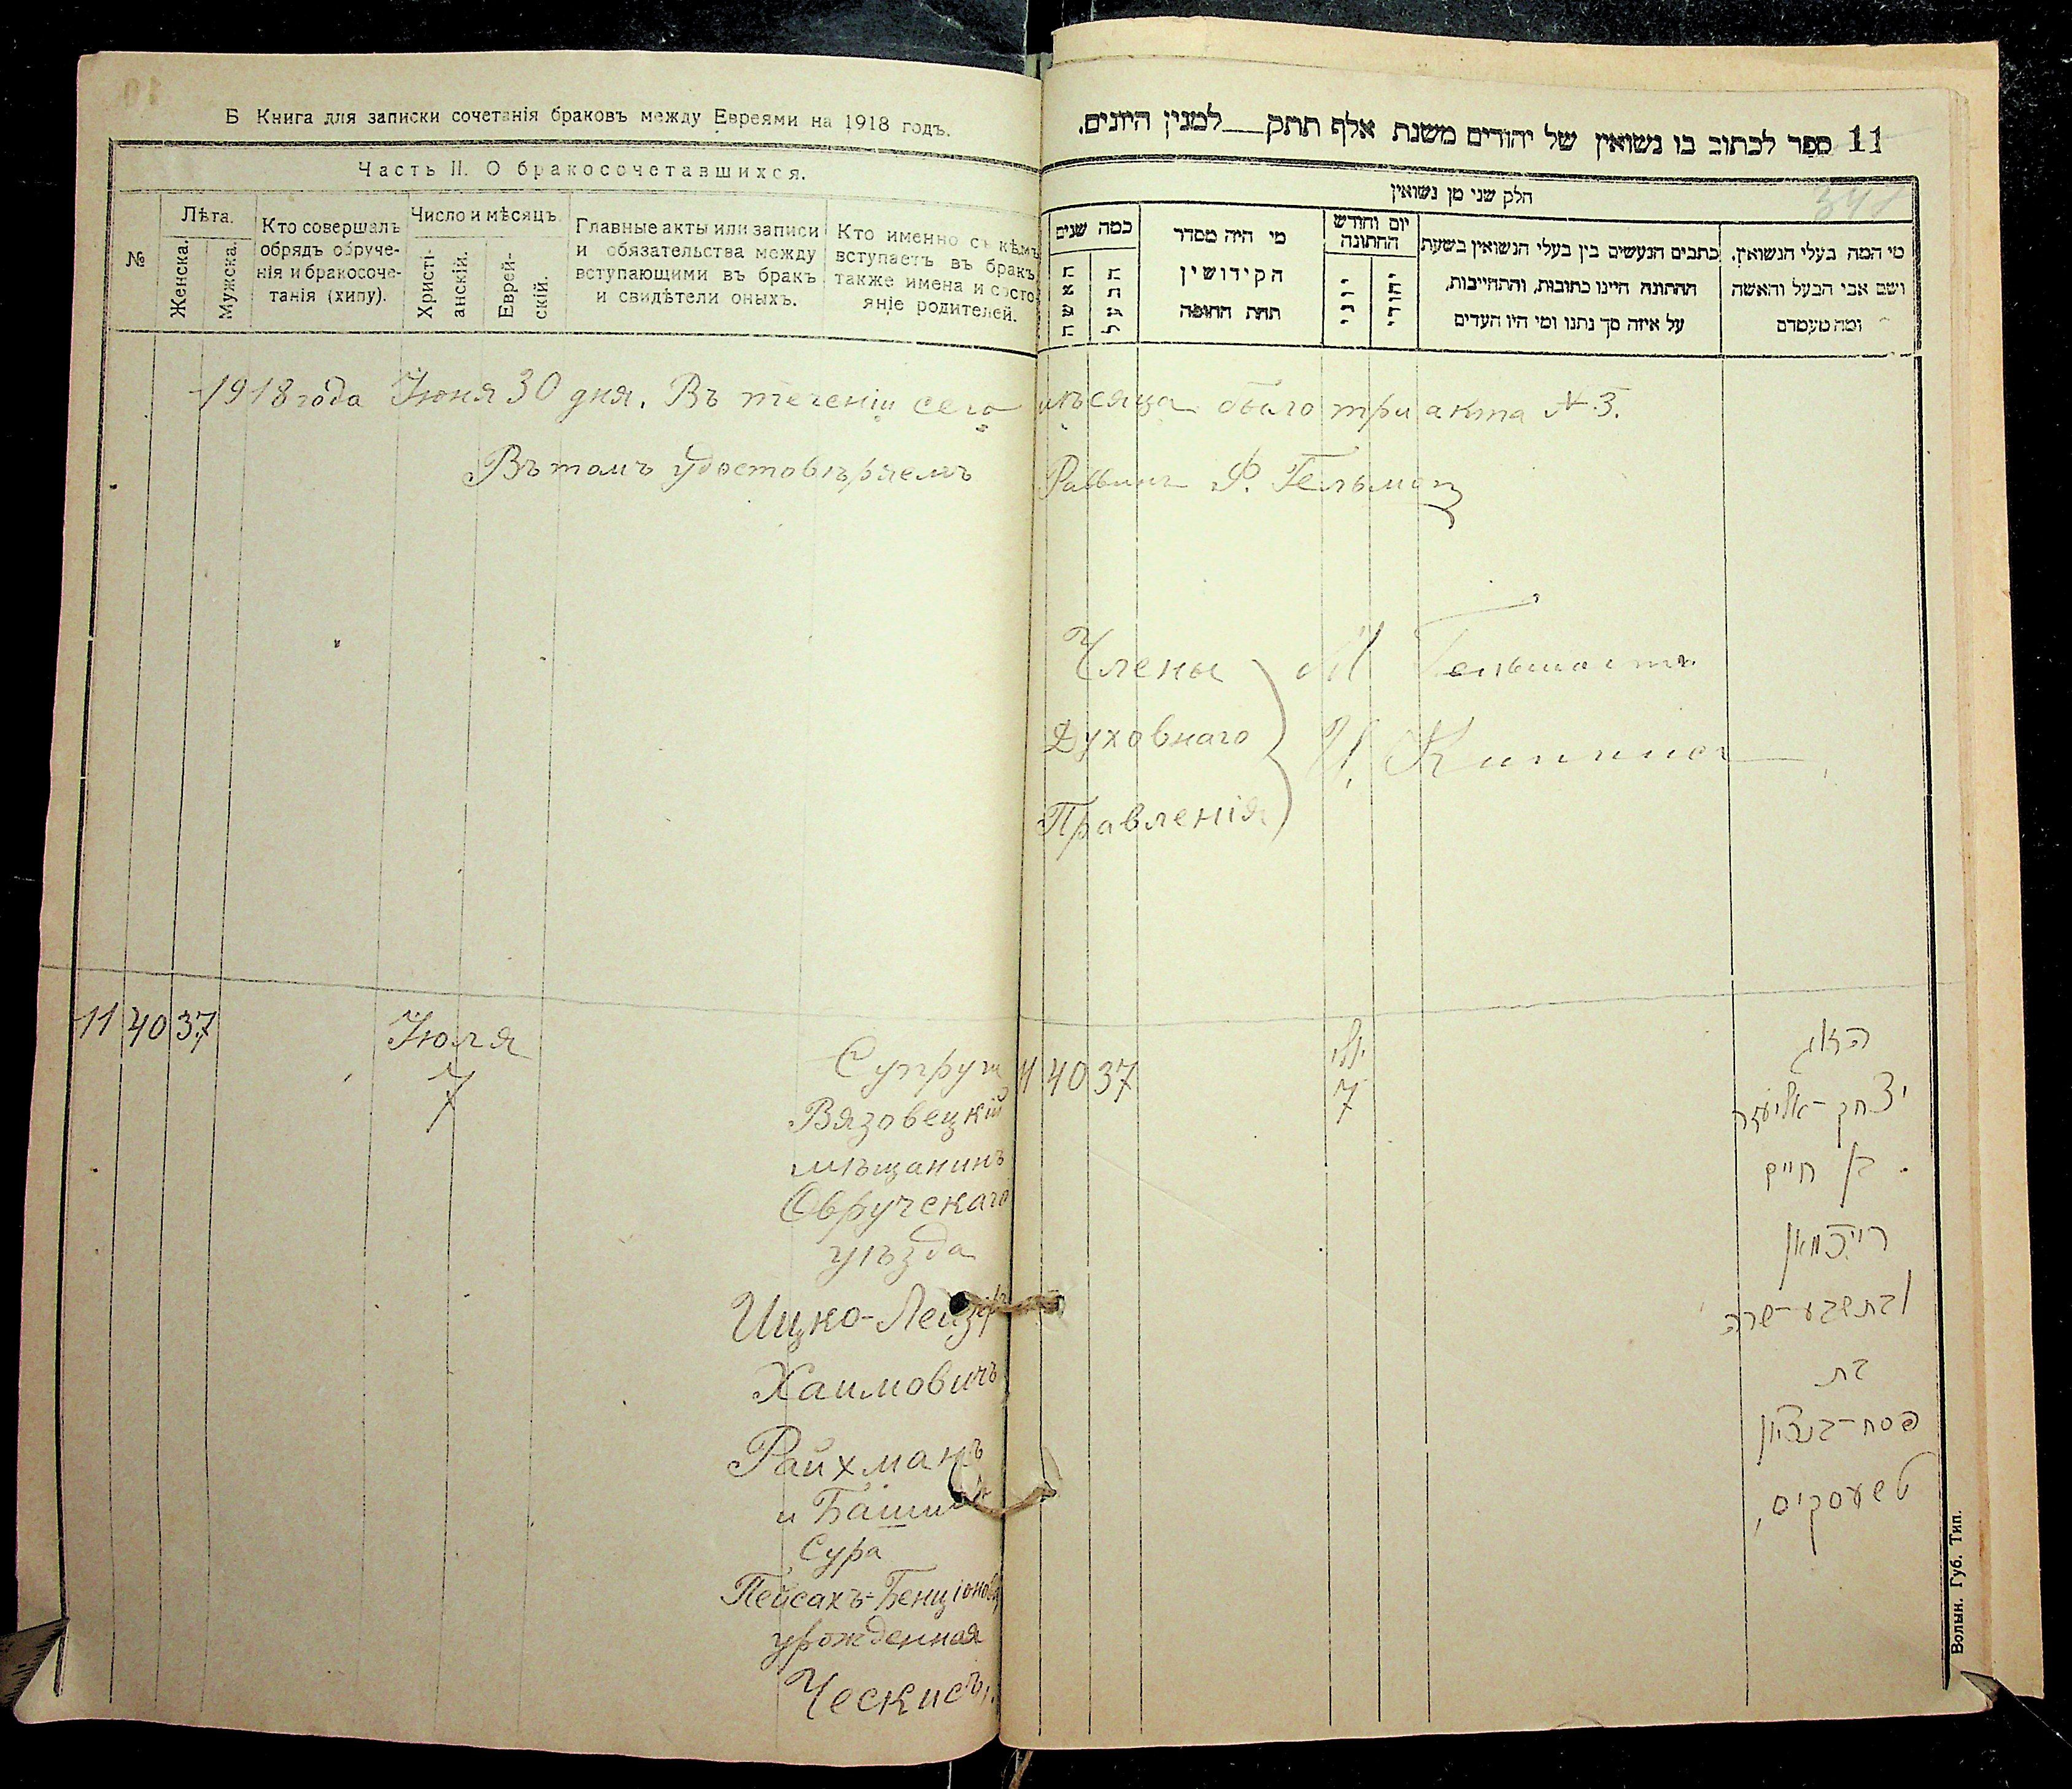 Б Книга для записки сочетанія браковъ между Евреями на 1918 годъ.
Часть II. О бракосочетавшихся.
№
Лѣта.
Женска.
Мужска.
Кто совершалъ
обрядъ обруче-
нія и бракосоче-
танія (хипу).
Число и мѣсяцъ
Христі-
анскій.
Еврей-
скій.
Главные акты или записи
и обязательства между
вступающими въ бракъ
и свидѣтели оныхъ.
Кто именно съ кѣмъ
вступаетъ въ бракъ
также имена и состо-
яніе родителей.
11 ספר לכתוב בו נשואין של יהודים משנת אלף תתק למנין היונים.
341
חלק שני מן נשואין
כמה שנים
האשה
הבעל
מי היה מסדר
הקידושין
תחת החופה
יום וחודש
החתונה
יוני
יהודי
כתבים הנעשים בין בעלי הנשואין בשעת
החתונה היינו כתובות, והתחייבות,
על איזה סך נתנו ומי היו העדים
מי המה בעלי הנשואין.
ושם אבי הבעל והאשה
ומה מעמדם
1918 года Іюня 30 дня. Въ теченіи сего мѣсяца было три акта №3.
Въ томъ удостовѣряемъ Раввинъ Ф. Гельман
Члены
Духовнаго
Правленія
И. Кипнис
11 40 37
Іюля
7
Супруги
Вязовецкій
мѣщанинъ
Овручскаго
уѣзда
Ицко-Лейзер
Хаимовичъ
Райхманъ
и Башива
Сура
Пейсахъ-Бенціонова
урожденная
Ческисъ.
11 40 37
יולי
7
הזוג
יצחק-אליעזר
בן חיים
רייכמאן
ובתשבע-שרה
בת
פסח-בנציון
טשעסקיס,
Волын. Губ. Тип.